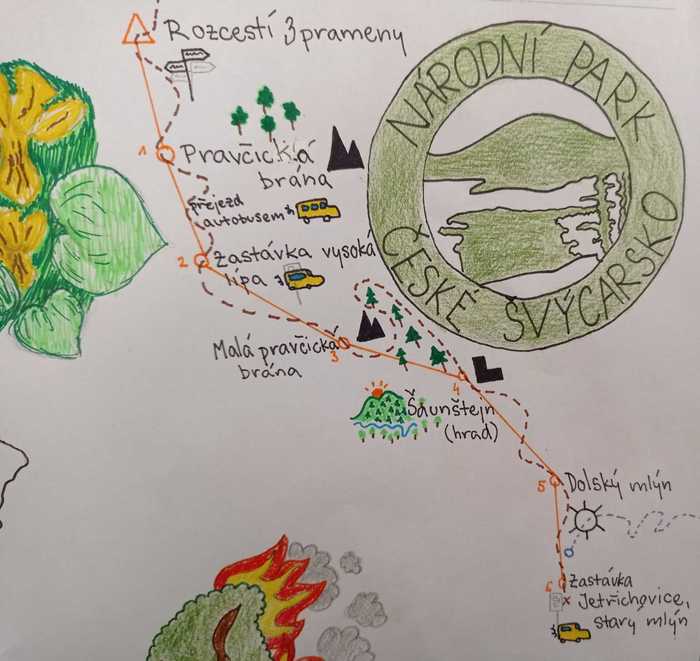 Rozcestí 3 prameny
NÁRODNÍ PARK
ČESKÉ ŠVÝCARSKO
1
Pravčická
brána
přejezd
autobusem
2
Zastávka vysoká
lípa
Malá pravčická
brána
3
4
Šaunštejn
(hrad)
5
Dolský mlýn
6
Zastávka
x Jetřichovice,
starý mlýn